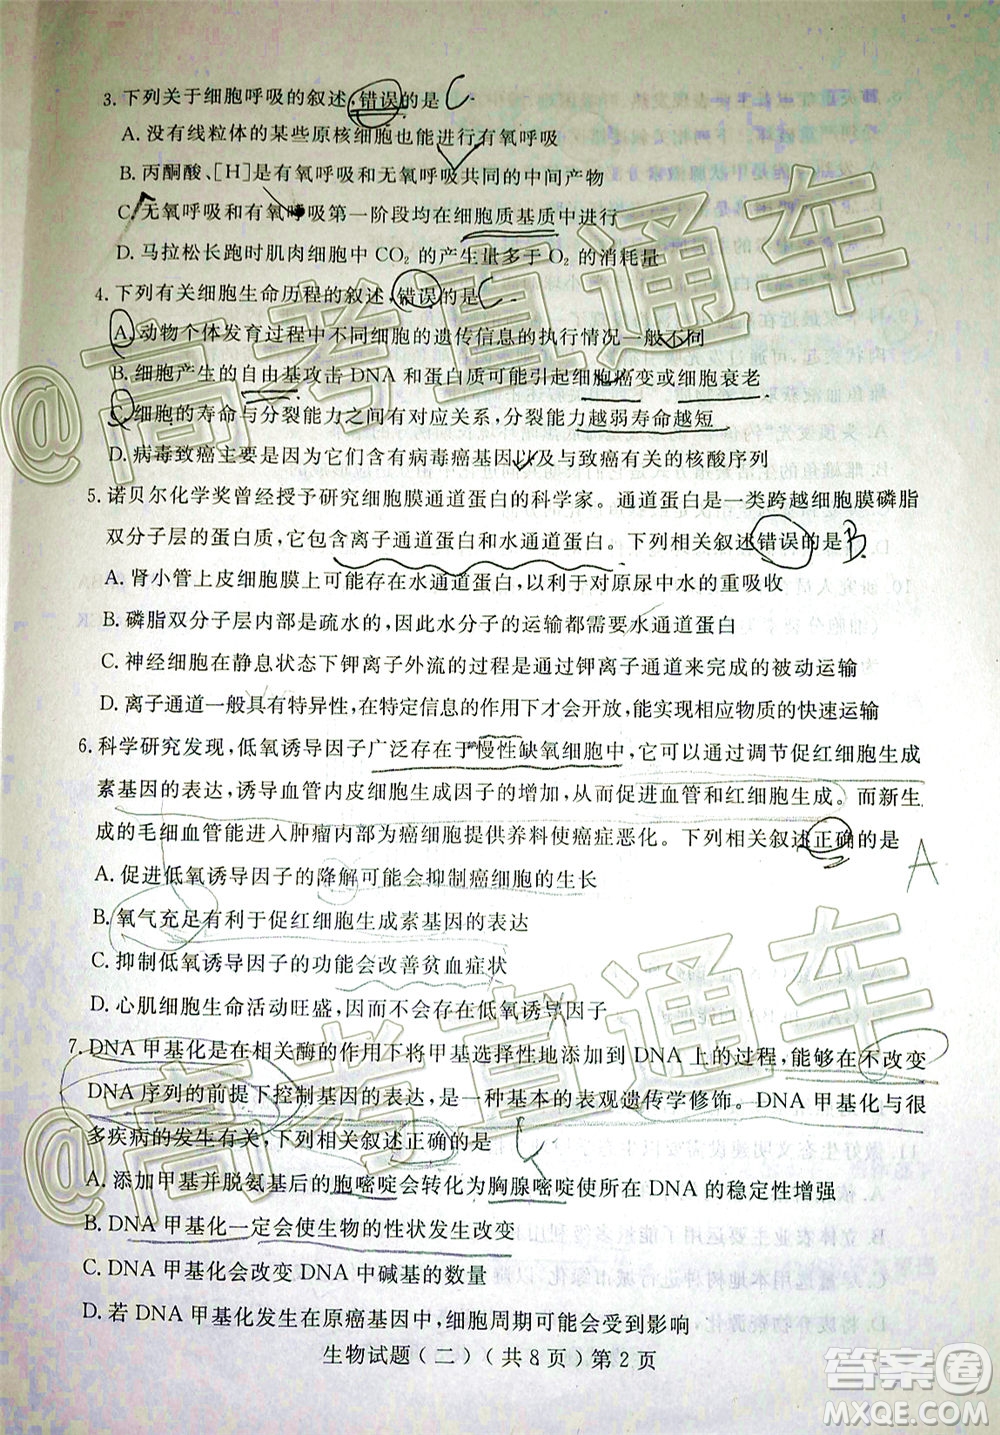 3. 下列关于细胞呼吸的叙述,错误的是 C
A. 没有线粒体的某些原核细胞也能进行有氧呼吸
B. 丙酮酸、[H]是有氧呼吸和无氧呼吸共同的中间产物
C. 无氧呼吸和有氧呼吸第一阶段均在细胞质基质中进行
D. 马拉松长跑时肌肉细胞中 CO₂ 的产生量多于 O₂ 的消耗量
4. 下列有关细胞生命历程的叙述,错误的是 C
A. 动物个体发育过程中不同细胞的遗传信息的执行情况一般不同
B. 细胞产生的自由基攻击 DNA 和蛋白质可能引起细胞癌变或细胞衰老
C. 细胞的寿命与分裂能力之间有对应关系,分裂能力越弱寿命越短
D. 病毒致癌主要是因为它们含有病毒癌基因以及与致癌有关的核酸序列
5. 诺贝尔化学奖曾经授予研究细胞膜通道蛋白的科学家。通道蛋白是一类跨越细胞膜磷脂
双分子层的蛋白质,它包含离子通道蛋白和水通道蛋白。下列相关叙述错误的是 B
A. 肾小管上皮细胞膜上可能存在水通道蛋白,以利于对原尿中水的重吸收
B. 磷脂双分子层内部是疏水的,因此水分子的运输都需要水通道蛋白
C. 神经细胞在静息状态下钾离子外流的过程是通过钾离子通道来完成的被动运输
D. 离子通道一般具有特异性,在相关信息的作用下才会开放,能实现相应物质的快速运输
6. 科学研究发现,低氧诱导因子广泛存在于慢性缺氧细胞中,它可以通过调节促红细胞生成
素基因的表达,诱导血管内皮细胞生成因子的增加,从而促进血管和红细胞生成。而新生
成的毛细血管能进入肿瘤内部为癌细胞提供养料使癌症恶化。下列相关叙述正确的是 A
A. 促进低氧诱导因子的降解可能会抑制癌细胞的生长
B. 氧气充足有利于促红细胞生成素基因的表达
C. 抑制低氧诱导因子的功能会改善贫血症状
D. 心肌细胞生命活动旺盛,因而不会存在低氧诱导因子
7. DNA 甲基化是在相关酶的作用下将甲基选择性地添加到 DNA 上的过程,能够在不改变
DNA 序列的前提下控制基因的表达,是一种基本的表观遗传学修饰。DNA 甲基化与很
多疾病的发生有关,下列相关叙述正确的是
A. 添加甲基并脱氨基后的胞嘧啶会转化为胸腺嘧啶使所在 DNA 的稳定性增强
B. DNA 甲基化一定会使生物的性状发生改变
C. DNA 甲基化会改变 DNA 中碱基的数量
D. 若 DNA 甲基化发生在原癌基因中,细胞周期可能会受到影响
生物试题(二)(共 8 页)第 2 页
@高考直通车
@高考直通车
答案圈
MXQE.COM